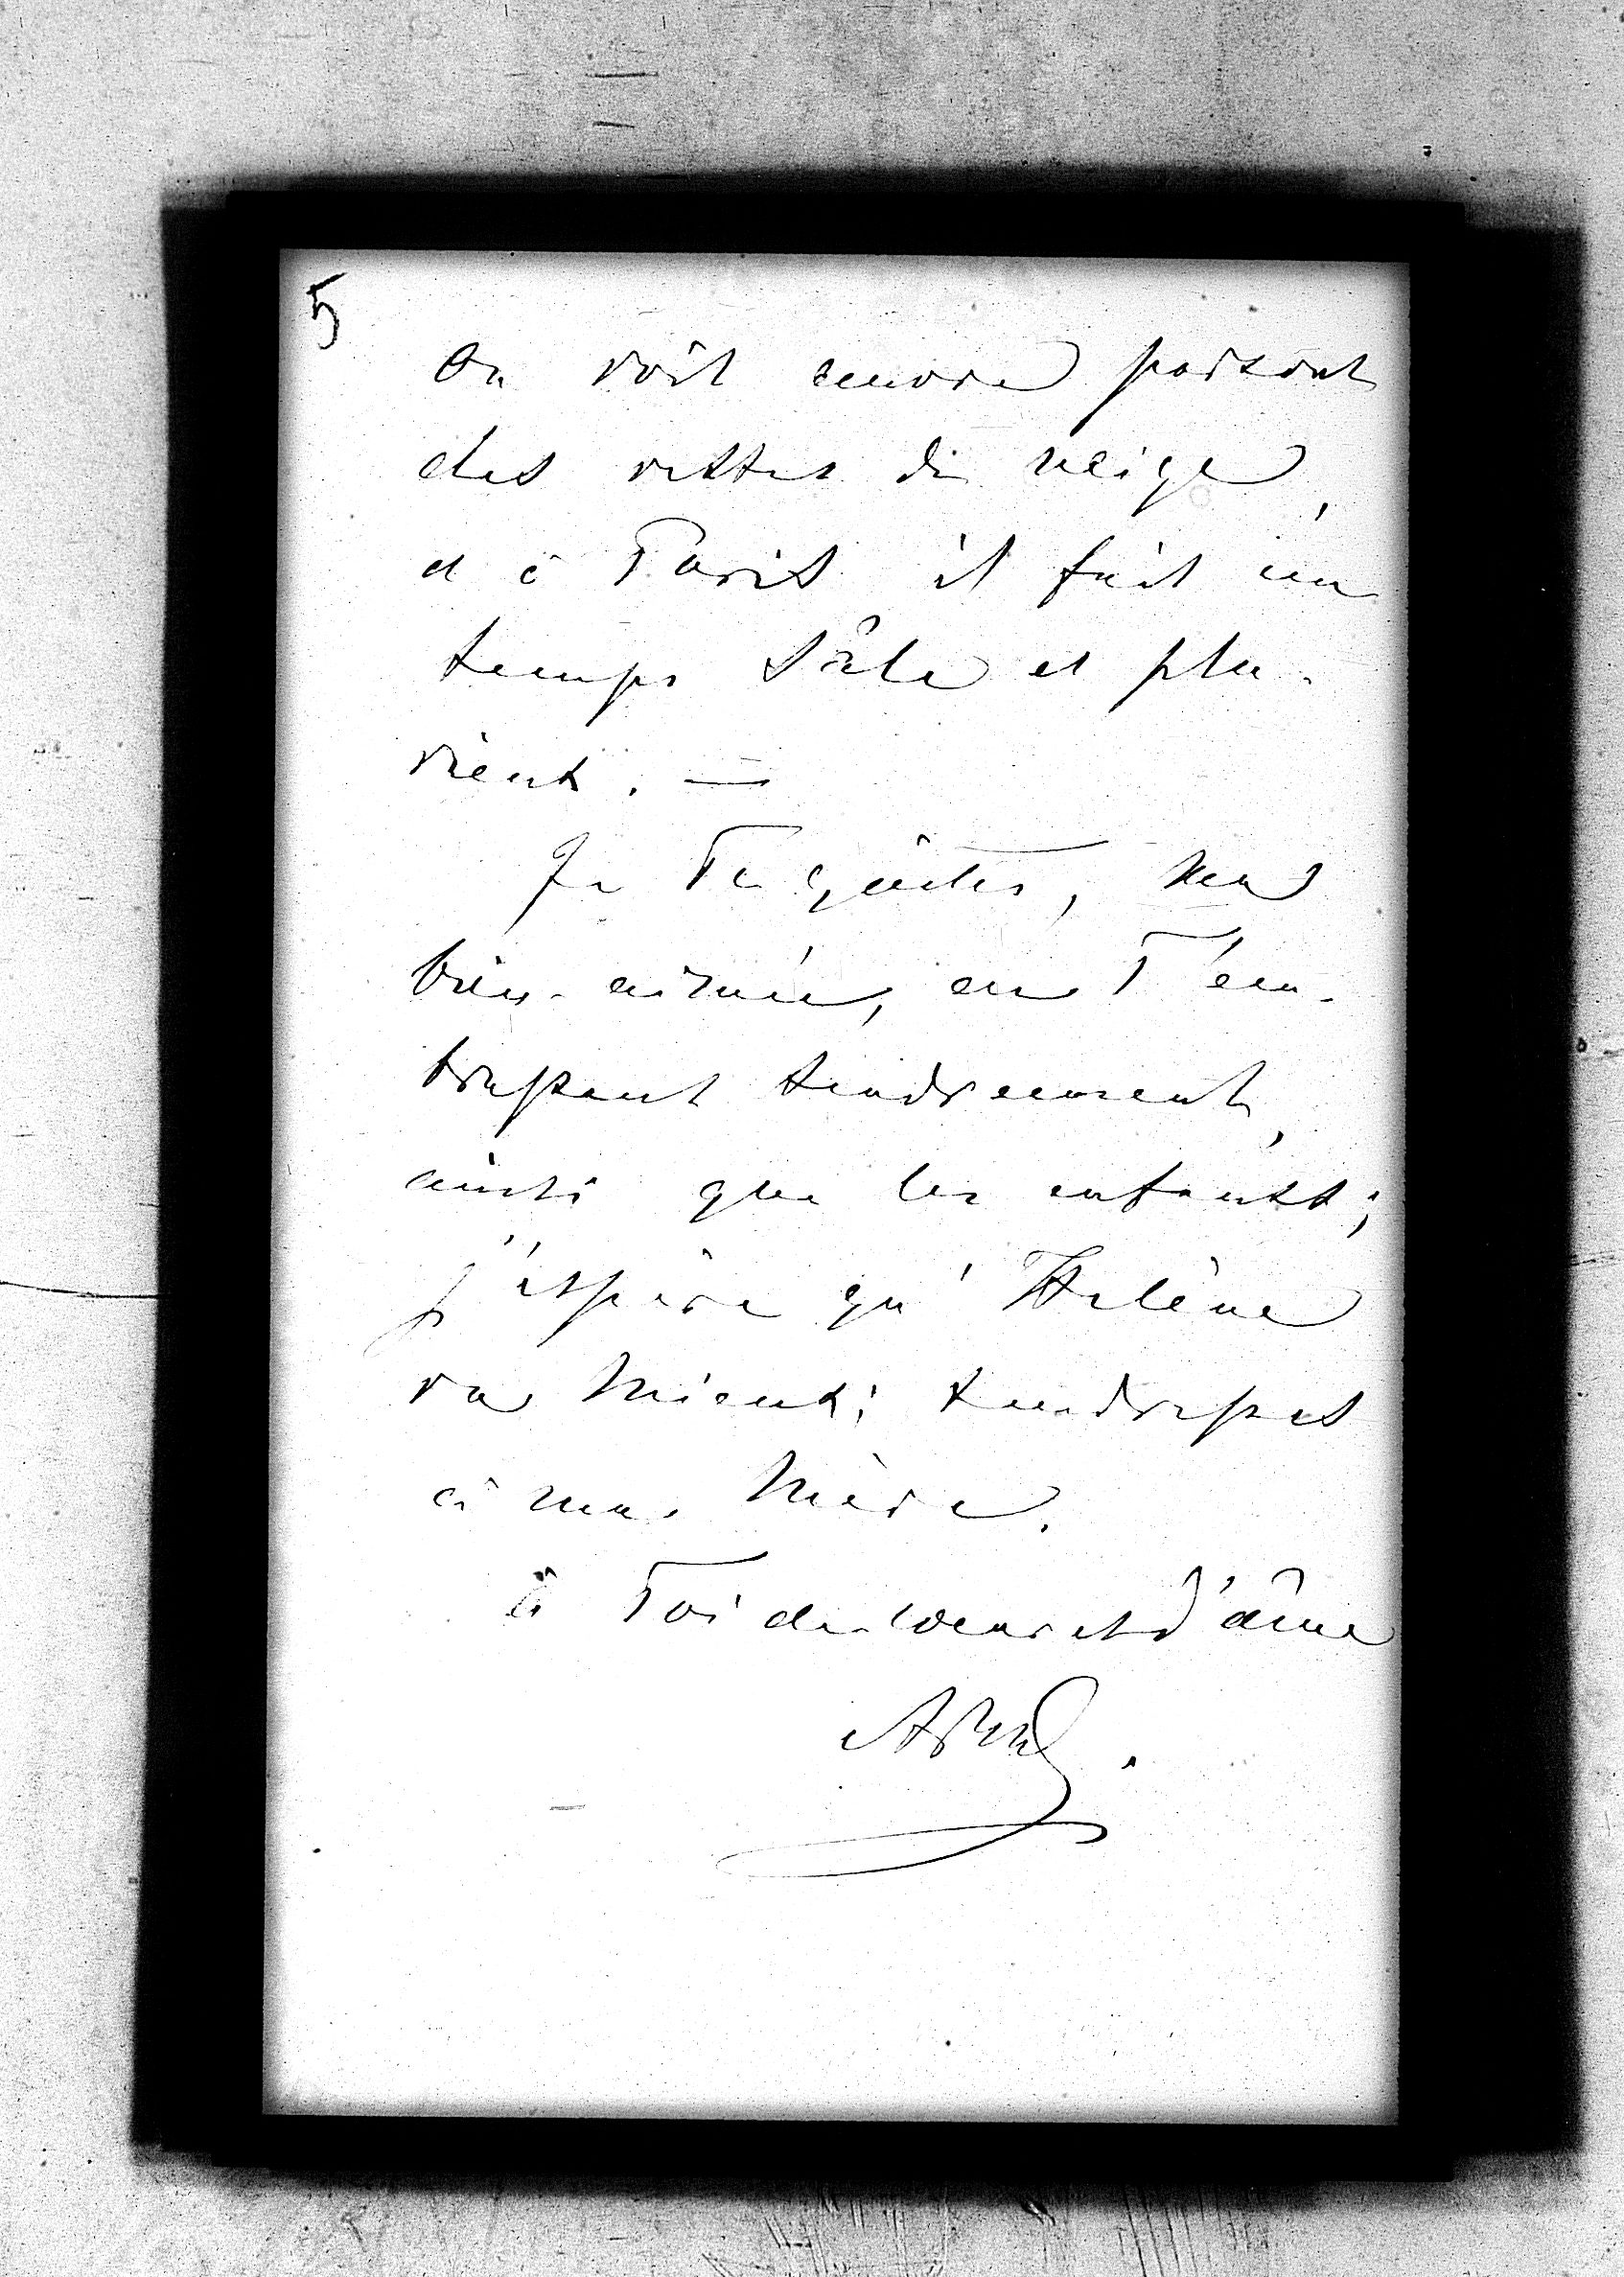 5
On voit encore partout
des restes de neige,
et à Paris il fait un
temps sâle et plu-
vieux. —
Je Te quitte, ma
bien-aimée, en T'em-
brassant tendrement,
ainsi que les enfants;
j'espère qu'Hélène
va mieux; tendresses
à ma Mère.
à Toi de coeur et d'âme